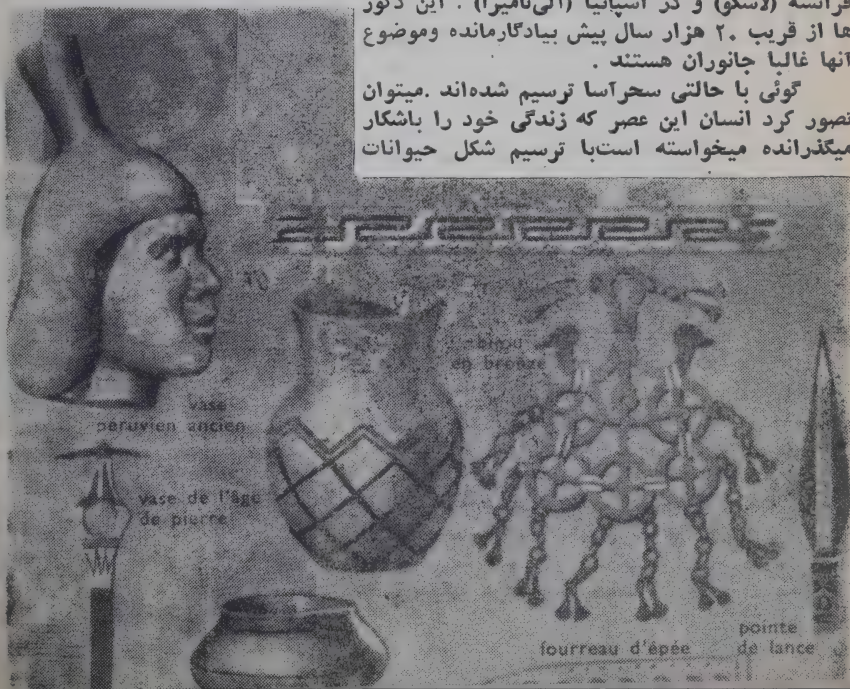 فرانسه (لاسکو) و در اسپانیا (آلی‌تامیرا) . این دکور
ها از قریب ۲۰ هزار سال پیش بیادگارمانده وموضوع
آنها غالبا جانوران هستند .
گوئی با حالتی سحرآسا ترسیم شده‌اند .میتوان
تصور کرد انسان این عصر که زندگی خود را باشکار
میگذرانده میخواسته است‌با ترسیم شکل حیوانات
bijou
en bronze
vase
péruvien ancien
vase de l'âge
de pierre
fourreau d'épée
pointe
de lance